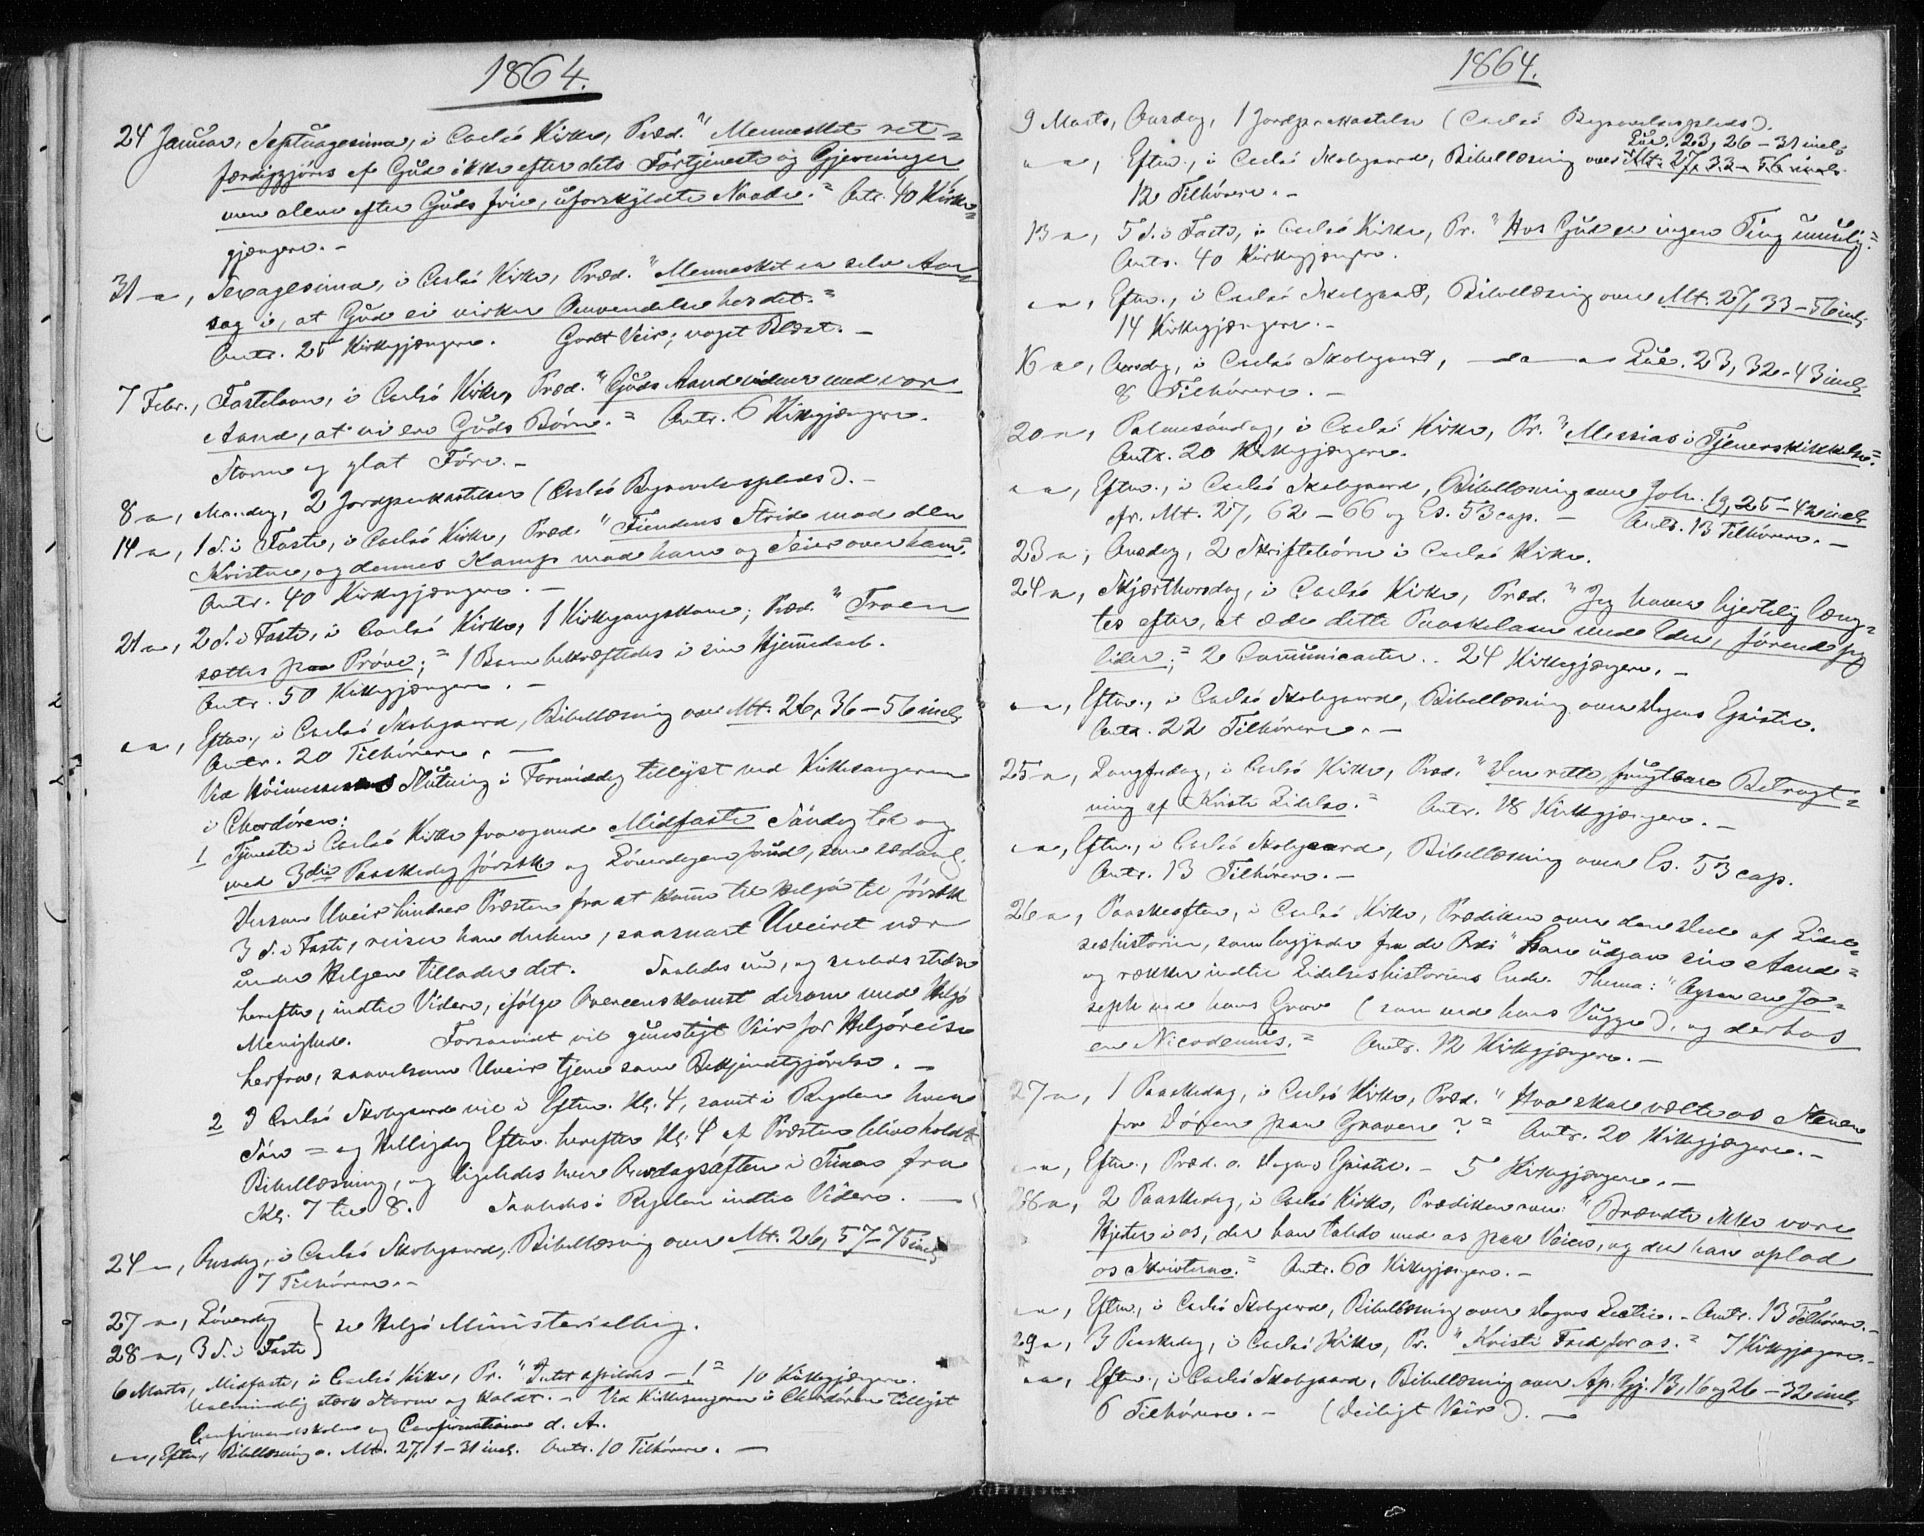 1864.
24 Januar, Septuagesima, i Carlsö Kirke, Præd. "Mennesket ret-
færdiggjöres af Gud ikke efter dets Fortjeneste og Gjerninger
men alene efter Guds frie, uforskyldte Naade." Antr. 40 Kirke-
gjængere. -
31 -, Sexagesima, i Carlsö Kirke, Præd. "Mennesket er selv Aar-
sag i, at Gud ei virker Omvendelse hos det."
Antr. 25 Kirkegjængere. Godt Veir; noget Blæst. -
7 Febr., Fastelavn, i Carlsö Kirke, Præd. "Guds Aand vidner med vor
Aand, at vi ere Guds Börn." Antr. 6 Kirkegjængere.
Storm og glat Före. -
8 -, Mandag, 2 Jordpaakastelser (Carlsö Begravelsesplads). -
14 -, 1 S. i Faste, i Carlsö Kirke, Præd. "Fiendens Strid mod den
Kristne, og dennes Kamp mod ham og Seier over ham."
Antr. 40 Kirkegjængere. -
21 -, 2 S. i Faste, i Carlsö Kirke, 1 Kirkegangskone; Præd. "Troen
sættes paa Pröve;" 1 Barn bekræftedes i sin Hjemmedaab.
Antr. 50 Kirkegjængere. -
- -, Efterm., i Carlsö Skolegaard, Bibellæsning over Mt. 26, 36-56 incl.
Antr. 20 Tilhörere. -
Ved Höimessens Slutning i Formiddag tillyst ved Kirkesangeren
i Chordören:
1 Tjeneste i Carlsö Kirke fra og med Midfaste Söndag til og
med 3die Paaskedag förstk. og Löverdagen forud, som sædvanl.
Dersom Uveir hindrer Præsten fra at komme til Helgö til förstk.
3 S. i Faste, reiser han derhen, saasnart Uveiret nær
under Helgen tillader det. Saaledes nu, og saaledes stedse
herefter, indtil Videre, ifölge Overeenskomst derom med Helgö
Menighed. Forsaavidt vil gunstigt Veir for Helgöreise
herfra, saavelsom Uveir tjene som Bekjendtgjörelse. -
2 I Carlsö Skolegaard vil i Efterm. Kl. 4, samt i Reglen hver
Sön- og Helligdag Efterm. herefter Kl. 4 af Præsten blive holdt
Bibellæsning, og ligeledes hver Onsdagsaften i Timen fra
Kl. 7 til 8. Saaledes i Reglen indtil Videre. -
24 -, Onsdag, i Carlsö Skolegaard, Bibellæsning over Mt. 26, 57-75 incl.
7 Tilhörere. -
27 -, Löverdag } se Helgö Ministerialbog.
28 -, 3 S. i Faste
6 Marts, Midfaste, i Carlsö Kirke, Pr. "Intet spildes - !" 10 Kirkegjængere.
Ualmindelig stærk Storm og Koldt. - Ved Kirkesangeren i Chordören tillyst
Confirmandskolen og Confirmationen d. A.
- -, Efterm., Bibellæsning o. Mt. 27, 1-31 incl. Antr. 10 Tilhörere. -
1864.
9 Marts, Onsdag, 1 Jordpaakastelse (Carlsö Begravelsesplads).
Luc. 23, 26-31 incl.
- -, Efterm., i Carlsö Skolegaard, Bibellæsning over Mt. 27, 33-56 incl.
12 Tilhörere. -
13 -, 5 S. i Faste, i Carlsö Kirke, Pr. "Hos Gud er ingen Ting umulig."
Antr. 40 Kirkegjængere.
- -, Efterm., i Carlsö Skolegaard, Bibellæsning over Mt. 27, 33-56 incl.
14 Kirkegjængere. -
16 -, Onsdag, i Carlsö Skolegaard, - - - Luc. 23, 32-43 incl.
8 Tilhörere. -
20 -, Palmesöndag, i Carlsö Kirke, Pr. "Messias i Tjenerskikkelse."
Antr. 20 Kirkegjængere.
- -, Efterm., i Carlsö Skolegaard, Bibellæsning over Joh. 19, 25-42 incl.
cfr. Mt. 27, 62-66 og Es. 53 cap. - Antr. 13 Tilhörere. -
23 -, Onsdag, 2 Skriftebörn i Carlsö Kirke.
24 -, Skjærthorsdag, i Carlsö Kirke, Præd. "Jeg haver hjertelig læng-
tes efter, at æde dette Paaskelam med Eder, förend jeg
lider;" 2 Communicanter. 24 Kirkegjængere. -
- -, Efterm., i Carlsö Skolegaard, Bibellæsning over Dagens Epistel.
Antr. 22 Tilhörere. -
25 -, Langfredag, i Carlsö Kirke, Præd. "Den rette, frugtbare Betragt-
ning af Kristi Lidelse." Antr. 18 Kirkegjængere. -
- -, Efterm., i Carlsö Skolegaard, Bibellæsning over Es. 53 cap.
Antr. 13 Tilhörere. -
26 -, Paaskeaften, i Carlsö Kirke, Prædiken over den Deel af Lidel-
seshistorien, som begynder fra de Ord: "Han udgav sin Aand"
og rækker indtil Lidelseshistoriens Ende. Thema: "Ogsaa en Jo-
seph ved hans Grav (som ved hans Vugge), og derhos
en Nicodemus." Antr. 12 Kirkegjængere. -
27 -, 1 Paaskedag, i Carlsö Kirke, Præd. "Hvo skal vælte os Stenen
fra Dören paa Graven?" Antr. 20 Kirkegjængere. -
- -, Efterm., Præd. o. Dagens Epistel. - 5 Kirkegjængere. -
28 -, 2 Paaskedag, i Carlsö Kirke, Prædiken over: "Brændte ikke vore
Hjerter i os, der han talede med os paa Veien, og der han oplod
os Skrifterne." Antr. 60 Kirkegjængere. -
- -, Efterm., i Carlsö Skolegaard, Bibellæsning over Dagens Lectie. - Antr. 13 Tilhörere. -
29 -, 3 Paaskedag, i Carlsö Kirke, Pr. "Kristi Fred for os." 7 Kirkegjængere. -
- -, Efterm., i Carlsö Skolegaard, Bibellæsning over Ap. Gj. 13, 16 og 26-32 incl.
6 Tilhörere. - (Deiligt Veir). -